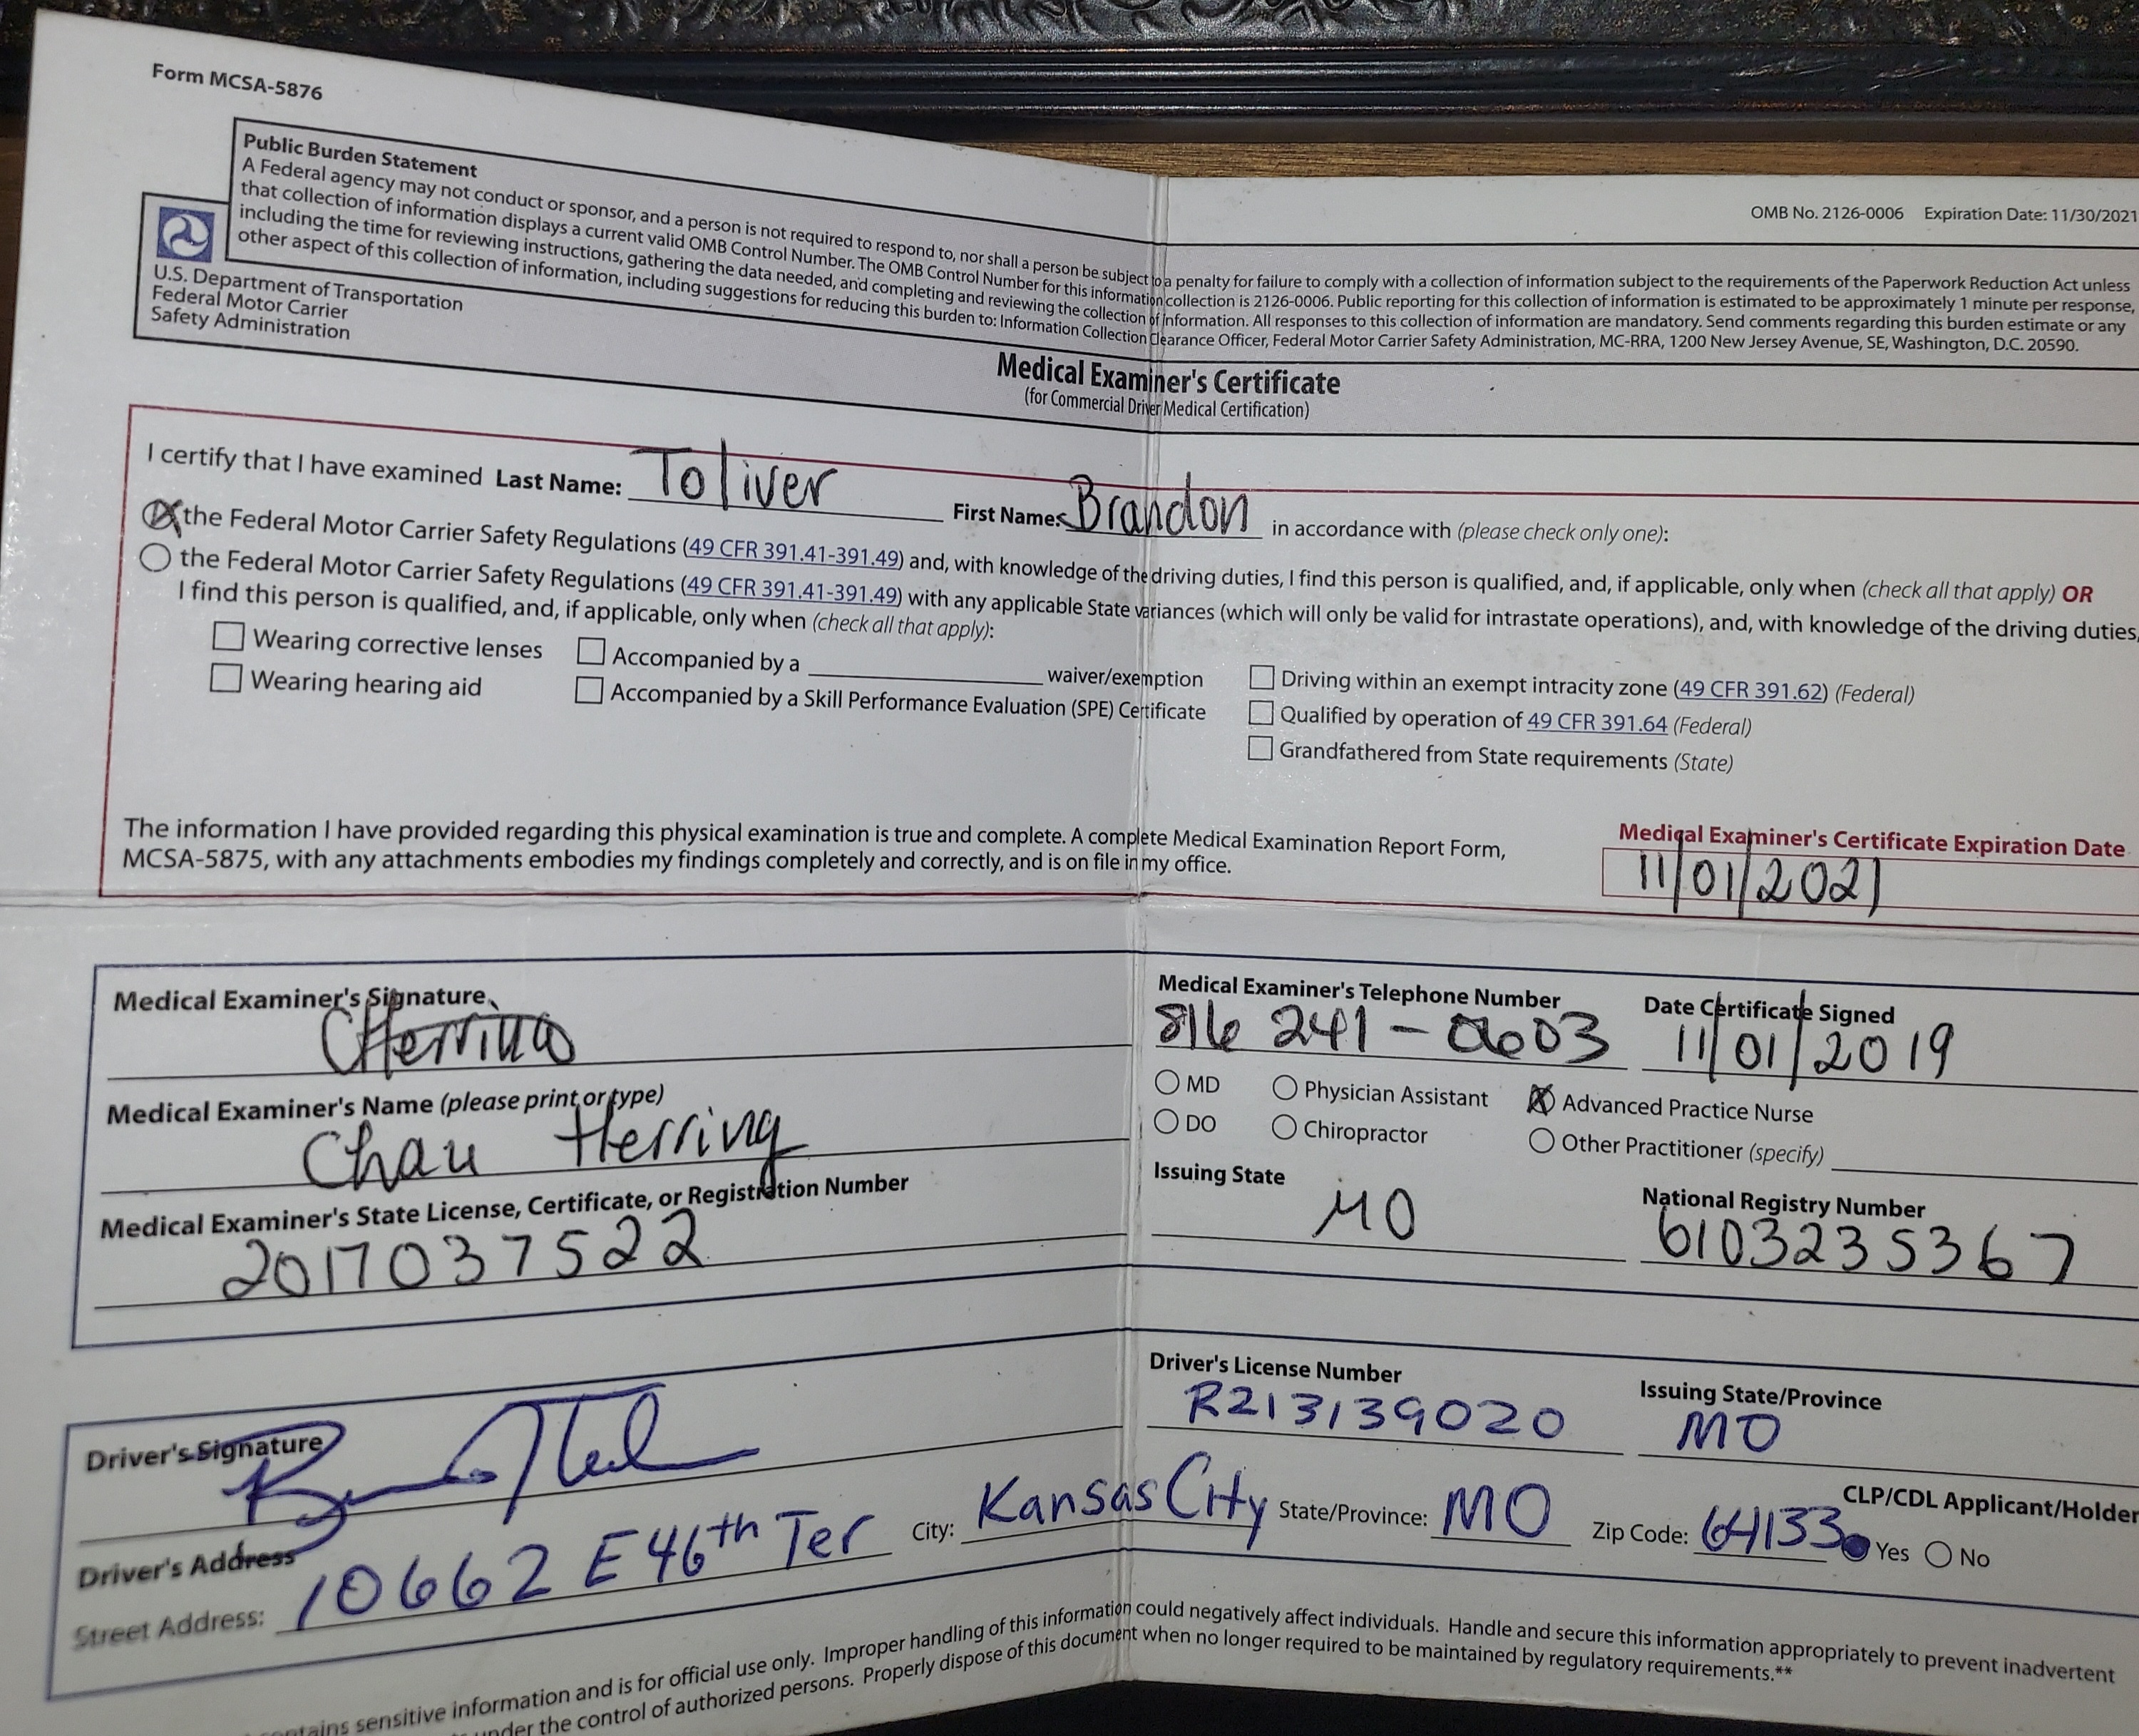 Form MCSA-5876
OMB No. 2126-0006 Expiration Date: 11/30/2021
Public Burden Statement
A Federal agency may not conduct or sponsor, and a person is not required to respond to, nor shall a person be subject to a penalty for failure to comply with a collection of information subject to the requirements of the Paperwork Reduction Act unless
that collection of information displays a current valid OMB Control Number. The OMB Control Number for this information collection is 2126-0006. Public reporting for this collection of information is estimated to be approximately 1 minute per response,
including the time for reviewing instructions, gathering the data needed, and completing and reviewing the collection of information. All responses to this collection of information are mandatory. Send comments regarding this burden estimate or any
other aspect of this collection of information, including suggestions for reducing this burden to: Information Collection Clearance Officer, Federal Motor Carrier Safety Administration, MC-RRA, 1200 New Jersey Avenue, SE, Washington, D.C. 20590.
U.S. Department of Transportation
Federal Motor Carrier
Safety Administration
Medical Examiner's Certificate
(for Commercial Driver Medical Certification)
I certify that I have examined Last Name: Toliver First Name: Brandon in accordance with (please check only one):
the Federal Motor Carrier Safety Regulations (49 CFR 391.41-391.49) and, with knowledge of the driving duties, I find this person is qualified, and, if applicable, only when (check all that apply) OR
the Federal Motor Carrier Safety Regulations (49 CFR 391.41-391.49) with any applicable State variances (which will only be valid for intrastate operations), and, with knowledge of the driving duties,
I find this person is qualified, and, if applicable, only when (check all that apply):
Wearing corrective lenses Accompanied by a waiver/exemption Driving within an exempt intracity zone (49 CFR 391.62) (Federal)
Wearing hearing aid Accompanied by a Skill Performance Evaluation (SPE) Certificate Qualified by operation of 49 CFR 391.64 (Federal)
Grandfathered from State requirements (State)
The information I have provided regarding this physical examination is true and complete. A complete Medical Examination Report Form,
MCSA-5875, with any attachments embodies my findings completely and correctly, and is on file in my office.
Medical Examiner's Certificate Expiration Date
11/01/2021
Medical Examiner's Signature
CHerring
Medical Examiner's Telephone Number
816 241-0603
Date Certificate Signed
11/01/2019
Medical Examiner's Name (please print or type)
Chau Herring
MD Physician Assistant Advanced Practice Nurse
DO Chiropractor Other Practitioner (specify)
Medical Examiner's State License, Certificate, or Registration Number
2017037522
Issuing State
MO
National Registry Number
6103235367
Driver's Signature
Driver's License Number
R213139020
Issuing State/Province
MO
Driver's Address
Street Address: 10662 E 46th Ter City: Kansas City State/Province: MO Zip Code: 64133
CLP/CDL Applicant/Holder
Yes No
sensitive information and is for official use only. Improper handling of this information could negatively affect individuals. Handle and secure this information appropriately to prevent inadvertent
under the control of authorized persons. Properly dispose of this document when no longer required to be maintained by regulatory requirements.**